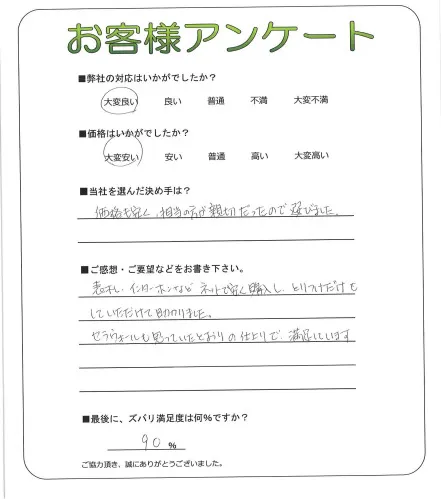 お客様アンケート
■弊社の対応はいかがでしたか?
大変良い 良い 普通 不満 大変不満
■価格はいかがでしたか?
大変安い 安い 普通 高い 大変高い
■当社を選んだ決め手は?
価格も安く、担当の方が親切だったので選びました。
■ご感想・ご要望などをお書き下さい。
表札、インターホンなど ネットで安く購入し、とりつけだけを
していただけて助かりました。
セラウォールも思っていたとおりの仕上りで、満足しています
■最後に、ズバリ満足度は何%ですか?
90 %
ご協力頂き、誠にありがとうございました。